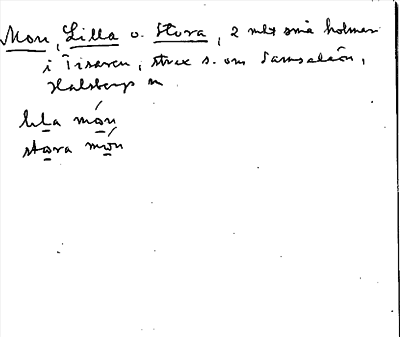 Mon, Lilla o. Stora, 2 mkt små holmar
i Tisaren, strax s. om
Halsbergs
lɩla món
stora món